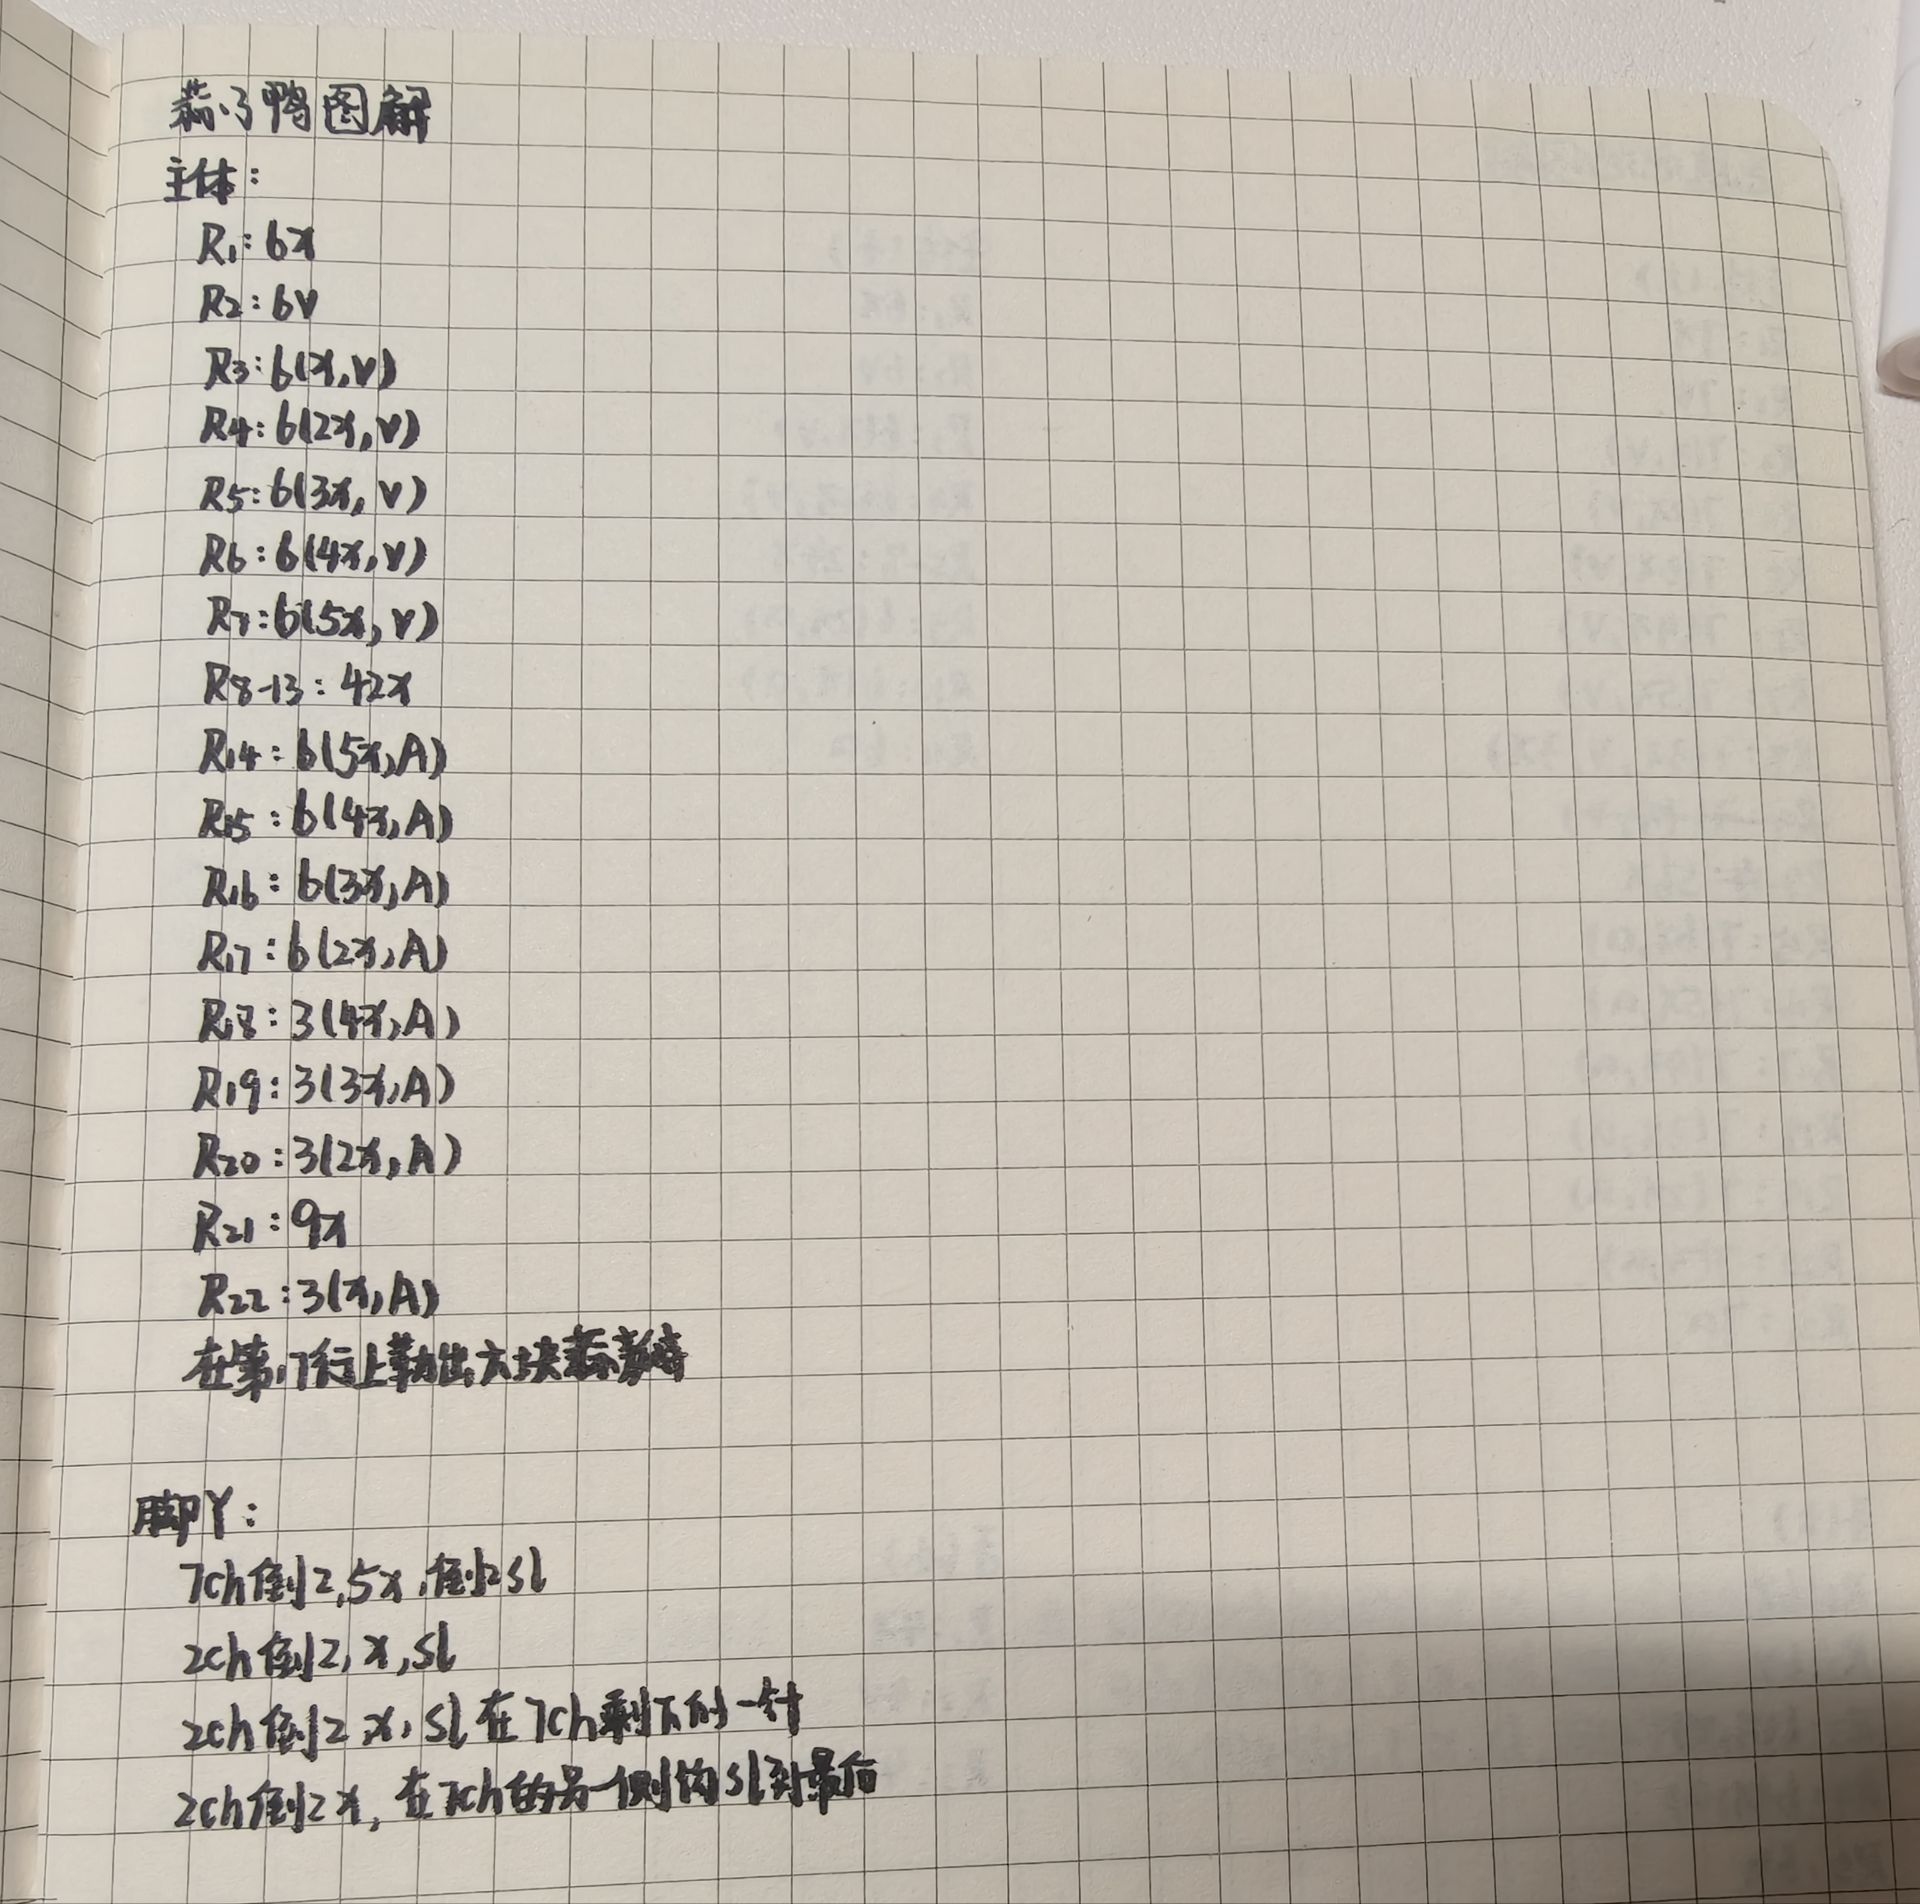 蒜小鸭图解
主体：
R1：6x
R2：6V
R3：6(x,V)
R4：6(2x,V)
R5：6(3x,V)
R6：6(4x,V)
R7：6(5x,V)
R8-13：42x
R14：6(5x,A)
R15：6(4x,A)
R16：6(3x,A)
R17：6(2x,A)
R18：3(4x,A)
R19：3(3x,A)
R20：3(2x,A)
R21：9x
R22：3(x,A)
在第17行上勒出六块蒜
脚丫：
7ch倒2,5x,倒2sl
2ch倒2,x,sl
2ch倒2,x,sl在7ch剩下的一针
2ch倒2x,在7ch的另一侧钩sl到最后